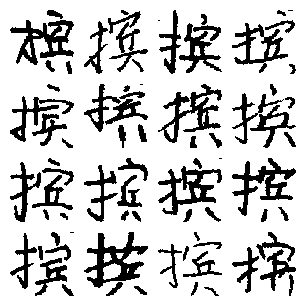 摈摈摈摈
摈摈摈摈
摈摈摈摈
摈摈摈摈